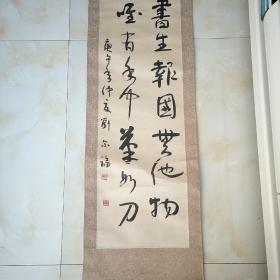 書生報國無他物
唯有手中筆如刀
庚午年仲夏 劉尔福